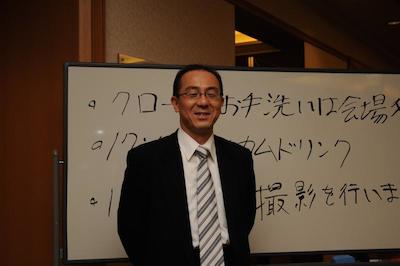 ・クロー お手洗いは会場
・ カムドリンク
・ 撮影を行いま